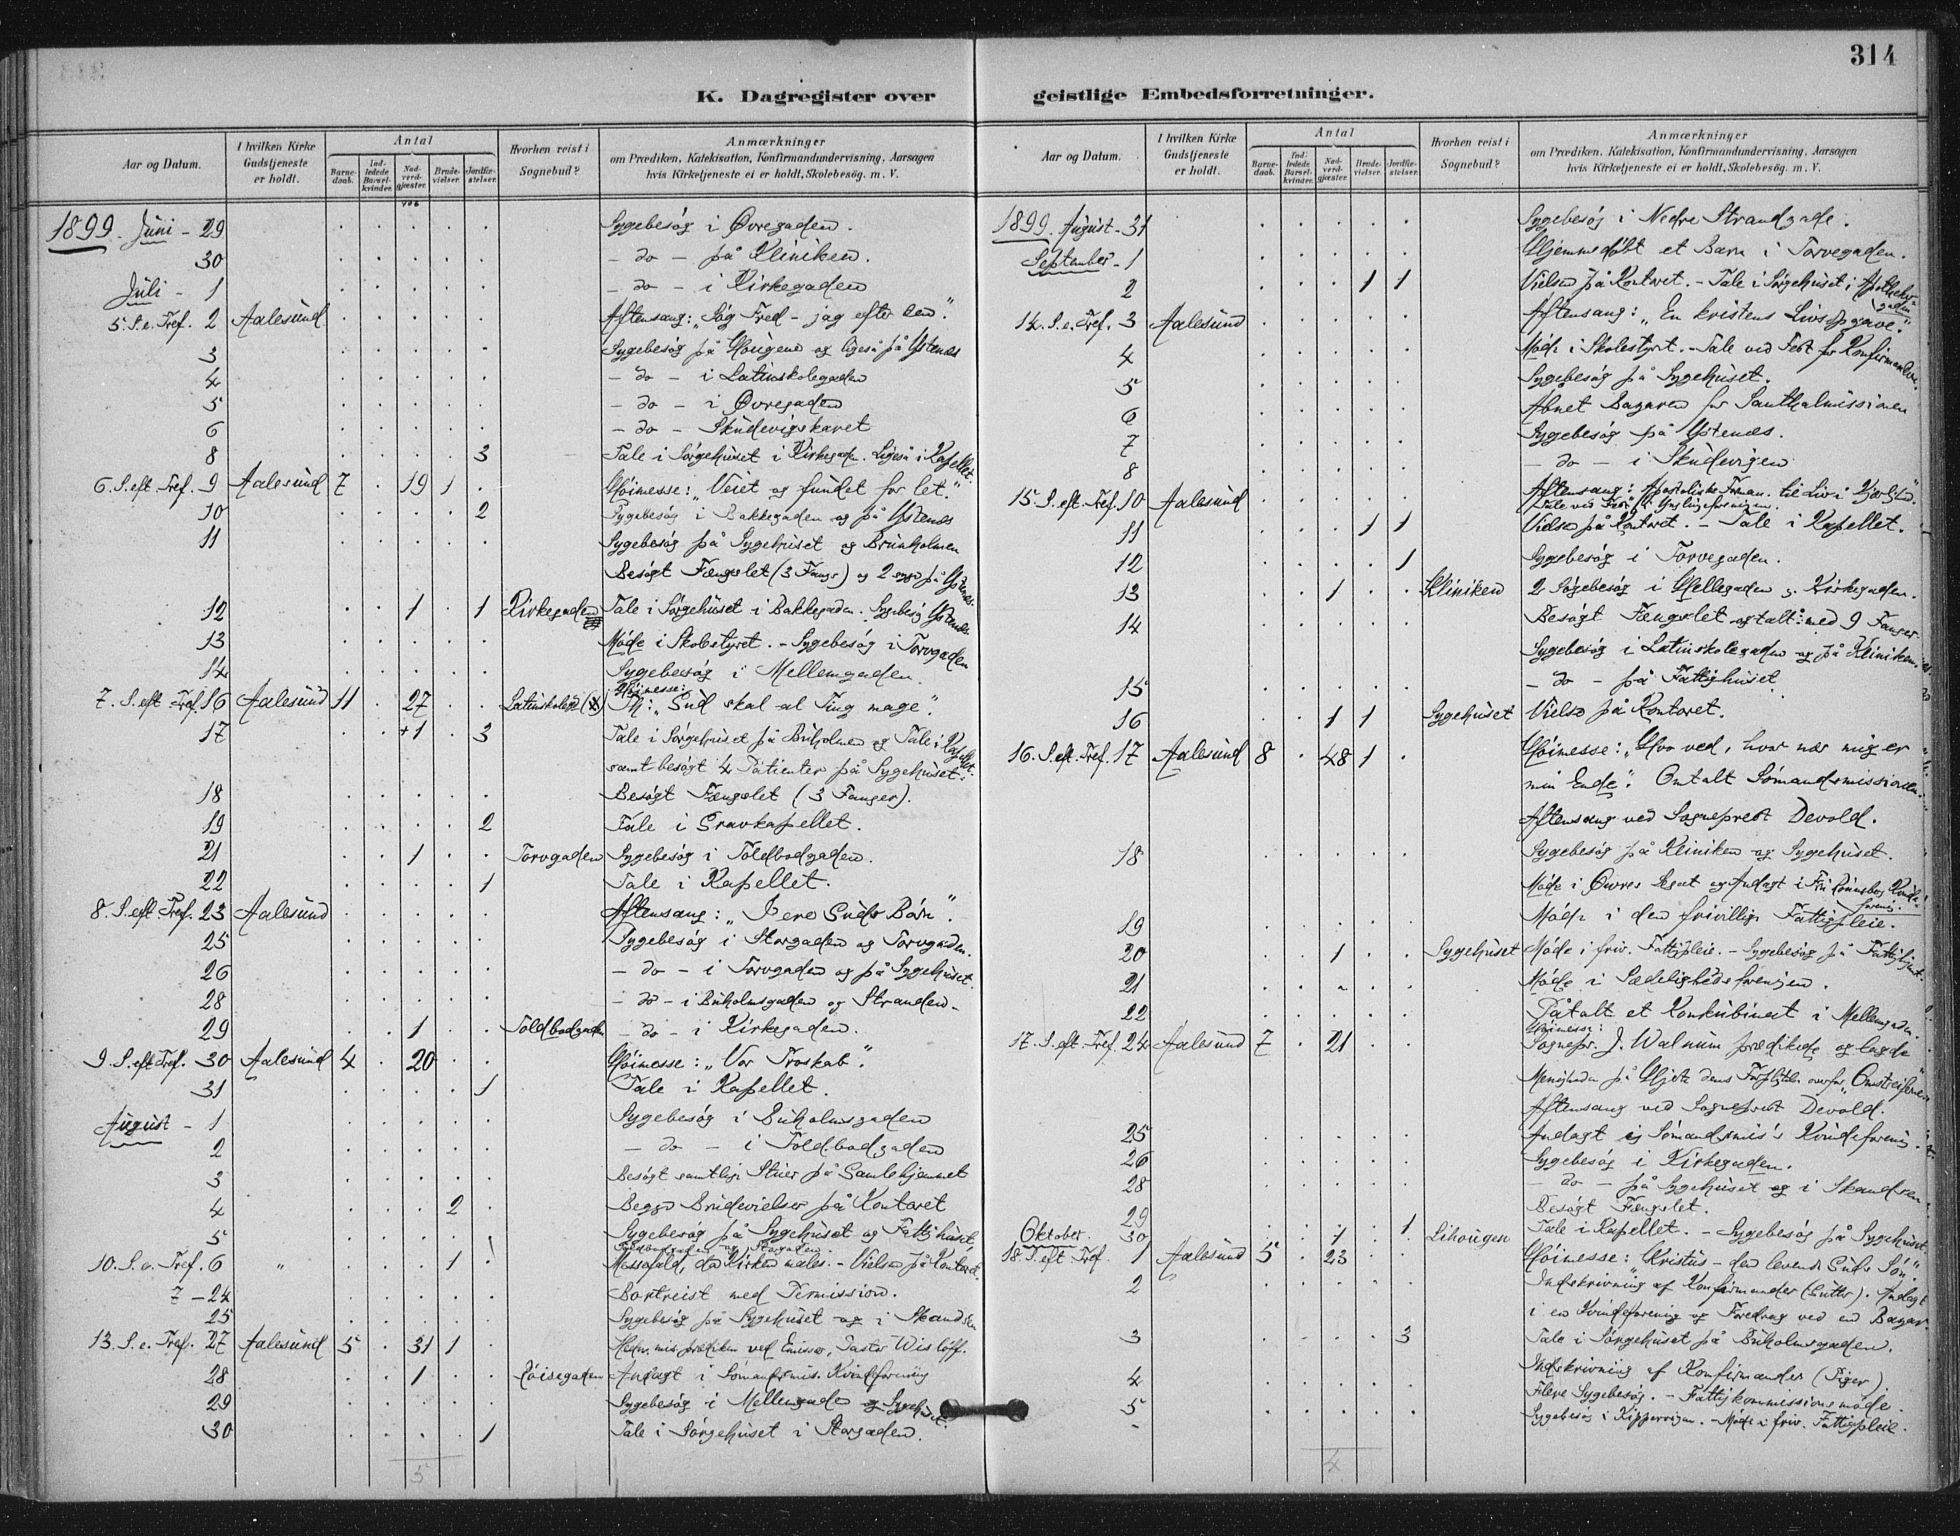 314
K. Dagregister over geistlige Embedsforretninger.
Aar og Datum.
I hvilken Kirke Gudstjeneste er holdt.
Antal
Barne-daab.
Ind-ledede Barsel-kvinder.
Nad-verd-gjæster.
Brude-vielser.
Jordfæ-stelser.
Hvorhen reist i Sognebud?
Anmærkninger
om Prædiken, Katekisation, Konfirmandundervisning, Aarsagen
hvis Kirketjeneste ei er holdt, Skolebesög. m. V.
1899. Juni - 29 Sygebesög i Øvregaden.
30 - do - på Kliniken.
Juli - 1 - do - i Kirkegaden
5. S. e. Tref. 2 Aalesund Aftensang: "Søg Fred - jag efter den".
3 Sygebesög på Hougene og ligeså på Ystenæs
4 - do - i Latinskolegaden
5 - do - i Øvregaden
6 - do - Skudevigskaret
8 3 Tale i Sörgehuset i Kirkegaden. Ligeså i Kapellet.
6. S. eft. Tref. 9 Aalesund 7 19 1 Höimesse: "Veiet og fundet for let."
10 2 Sygebesög i Bakkegaden og på Ystenæs
11 Sygebesög på Sygehuset og Brunholmen
Besögt Fængslet (3 Fanger) og 2 syge på Ystenæs.
12 1 1 Kirkegaden Tale i Sörgehuset i Bakkegaden. Sygebesög Ystenæs
13 Möde i Skolestyret. - Sygebesög i Torvgaden
14 Sygebesög i Mellemgaden.
7. S. eft. Tref. 16 Aalesund 11 27 Höimesse: "Gud skal al Ting mage".
17 +1 3 Tale i Sörgehuset på Buholmen og Tale i Kapellet
samt besögt 4 Patienter på Sygehuset.
18 Besögt Fængslet (3 Fanger).
19 2 Tale i Gravkapellet.
21 1 Torvgaden Sygebesög i Toldbodgaden.
22 1 Tale i Kapellet.
8. S. eft. Tref. 23 Aalesund Aftensang: "Være Guds Börn".
25 Sygebesög i Storgaden og Torvgaden.
26 - do - i Torvgaden og på Sygehuset.
28 - do - i Buholmsgaden og Stranden.
29 1 Toldbodgaden - do - i Kirkegaden.
9. S. eft Tref. 30 Aalesund 4 20 Höimesse: "Vor Troskab".
31 1 Tale i Kapellet.
August - 1 Sygebesög i Buholmsgaden
2 - do - i Toldbodgaden
3 Besögt samtlige Stuer på Gamlehjemmet
4 2 Begge Brudevielser på Kontoret
5 Sygebesög på Sygehuset og Fattighuset,
10. S. e. Tref. 6 " 1 Messefald, da Kirken males. - Vielse på Kontoret.
7 - 24 Bortreist med Permission.
25 Sygebesög på Sygehuset og i Skandsen
13. S. e. Tref. 27 Aalesund 5 31 1 Hedn. mis. prædiken ved Emissær, Pastor Wislöff.
28 1 Röisegaden Andagt i Sömandsmis. Kvindeforening
29 Sygebesög i Mellemgaden og Sygehuset.
30 1 Tale i Sörgehuset i Storgaden.
5
Aar og Datum.
I hvilken Kirke Gudstjeneste er holdt.
Antal
Barne-daab.
Ind-ledede Barsel-kvinder.
Nad-verd-gjæster.
Brude-vielser.
Jordfæ-stelser.
Hvorhen reist i Sognebud?
Anmærkninger
om Prædiken, Katekisation, Konfirmandundervisning, Aarsagen
hvis Kirketjeneste ei er holdt, Skolebesög. m. V.
1899. August - 31 Sygebesög i Nedre Strandgade.
September - 1 Hjemmedöbt et Barn i Torvegaden.
2 1 1 Vielse på Kontoret. - Tale i Sörgehuset i Apothekergaden
14. S. e. Tref. 3 Aalesund Aftensang: "En kristens Livsopgave."
4 Möde i Skolestyret. - Tale ved Fest for Konfirmanderne.
5 Sygebesög på Sygehuset.
6 Åbnet Bazaren for Santhalmissionen
7 Sygebesög på Ystenæs.
8 - do - i Skudevigen
15. S. eft. Tref. 10 Aalesund Aftensang: Apostoliske Forman. til Liv i Kjærlighed".
Tale ved Fest Ynglingeforeningen.
11 1 1 Vielse på Kontoret. - Tale i Kapellet.
12 1 Sygebesög i Torvegaden.
13 1 Kliniken 2 Sygebesög i Hellegaden og Kirkegaden.
14 Besögt Fængslet og talt med 9 Fanger.
Sygebesög i Latinskolegaden og på Kliniken.
15 - do - på Fattighuset
16 1 1 Sygehuset Vielse på Kontoret.
16. S. eft. Tref. 17 Aalesund 8 48 1 Höimesse: "Hvo ved, hvor nær mig er
min Ende". Omtalt Sömandsmissionen.
Aftensang ved Sogneprest Devold.
18 Sygebesög på Kliniken og Sygehuset.
19 Möde i den frivillige Fattigpleie.
20 1 Sygehuset Möde i friv. Fattigpleie. - Sygebesög på Fattighuset.
21 Möde i Sædelighedsforeningen.
22 Påtalt et Konkubinat i Mellemgaden.
17. S. eft. Tref. 24 Aalesund 7 21 Höimesse: Sognepr. J. Walnum prædikede og lagde
Menigheden på Hjerte dens Forpligtelse overfor "Omstreiferne"
Aftensang ved Sogneprest Devold.
25 Andagt i Sömandsmis's Kvindeforening.
26 Sygebesög i Kirkegaden.
28 - do - på Sygehuset og i Skandsen
Besögt Fængslet.
29 1 Tale i Kapellet. - Sygebesög på Sygehuset.
30 1 Lihougen
Oktober.
18. S. eft Tref. 1 Aalesund 5 23 Höimesse: "Kristus - den levende Guds Sön."
2 Indskrivning af Konfirmander (Gutter). Andagt
i en Kvindeforening og Foredrag ved en Bazar.
3 3 Tale i Sörgehuset på Buholmsgaden.
4 Indskrivning af Konfirmander (Piger)
Flere Sygebesög. - Fattigkommissionsmöde.
5 Sygebesög i Kippervigen. - Möde i friv. Fattigpleie.
4